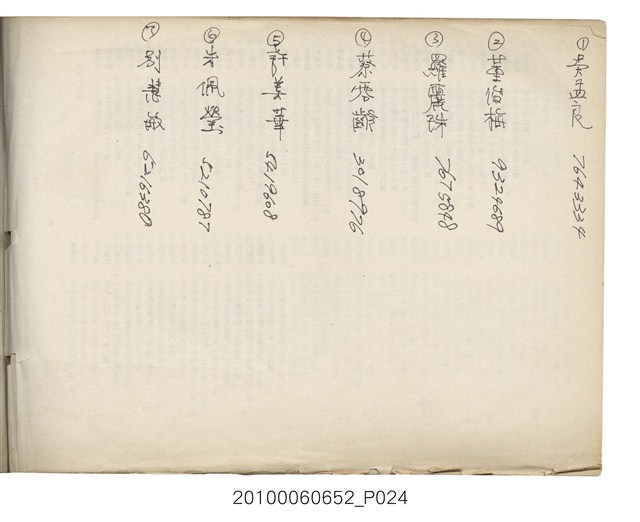 ① 吳孟良 7643334
② 董俊梅 9324689
③ 羅麗珠 7675848
④ 蔡雲齡 3018976
⑤ 許美華 5419608
⑥ 朱佩瑩 5210787
⑦ 劉慧敏
20100060652_P024